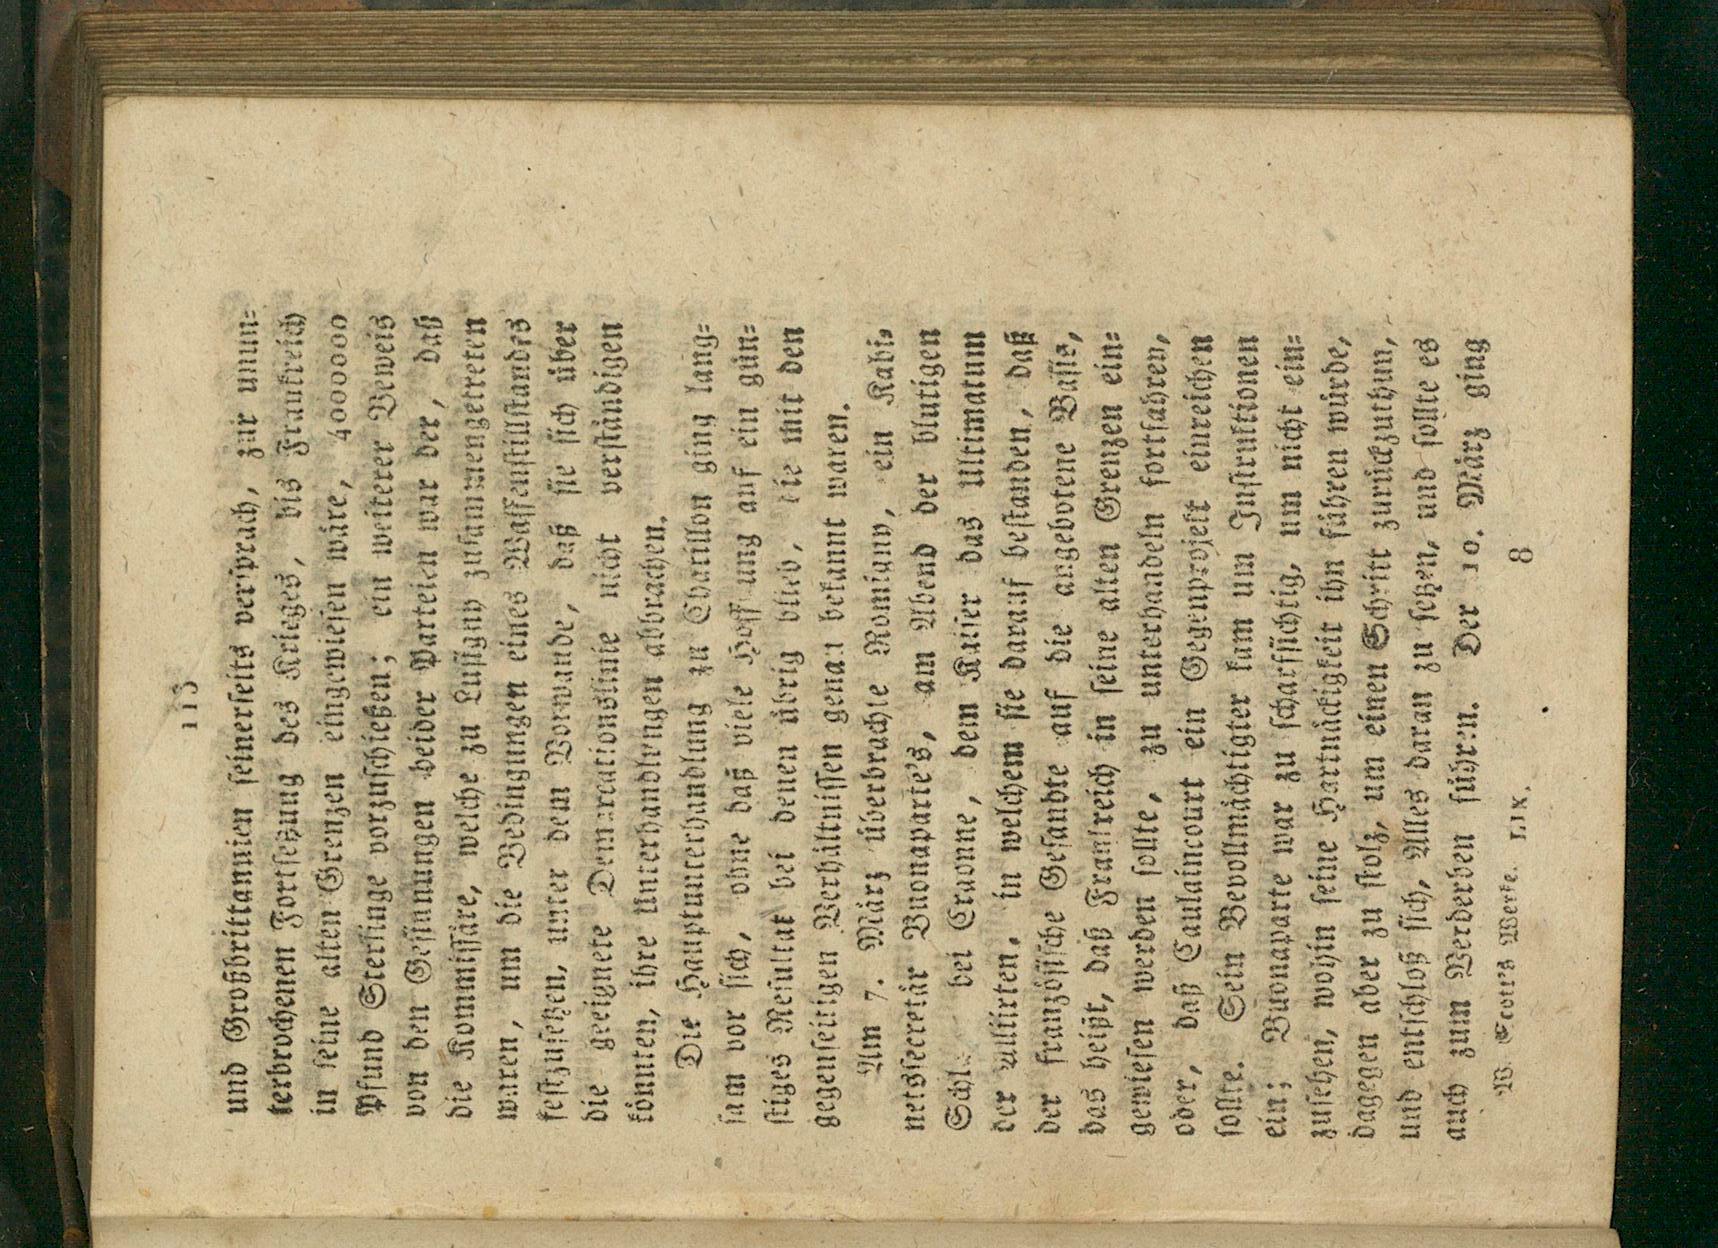 113
und Großbrittannien seinerseits versprach, zur unun-
terbrochenen Fortsetzung des Krieges, bis Frankreich
in seine alten Grenzen eingewiesen wäre, 4000000
Pfund Sterlinge vorzuschießen; ein weiterer Beweis
von den Gesinnungen beider Parteien war der, daß
die Kommissäre, welche zu Lusigny zusammengetreten
waren, um die Bedingungen eines Waffenstillstandes
festzusetzen, unter dem Vorwande, daß sie sich über
die geeignete Demarcationslinie nicht verständigen
könnten, ihre Unterhandlungen abbrachen.
Die Hauptunterhandlung zu Chatillon ging lang-
sam vor sich, ohne daß viele Hoffnung auf ein gün-
stiges Resultat bei denen übrig blieb, die mit den
gegenseitigen Verhältnissen genau bekannt waren.
Am 7. März überbrachte Romigny, ein Kabi-
netssecretär Buonaparte's, am Abend der blutigen
Schl. bei Craonne, dem Kaiser das Ultimatum
der Alliirten, in welchem sie darauf bestanden, daß
der französische Gesandte auf die angebotene Basis,
das heißt, daß Frankreich in seine alten Grenzen ein-
gewiesen werden sollte, zu unterhandeln fortfahren,
oder, daß Caulaincourt ein Gegenprojekt einreichen
sollte. Sein Bevollmächtigter kam um Instruktionen
ein; Buonaparte war zu scharfsichtig, um nicht ein-
zusehen, wohin seine Hartnäckigkeit ihn führen würde,
dagegen aber zu stolz, um einen Schritt zurückzuthun,
und entschloß sich, Alles daran zu setzen, und sollte es
auch zum Verderben führen. Der 10. März ging
W. Scott's Werke. LIX. 8